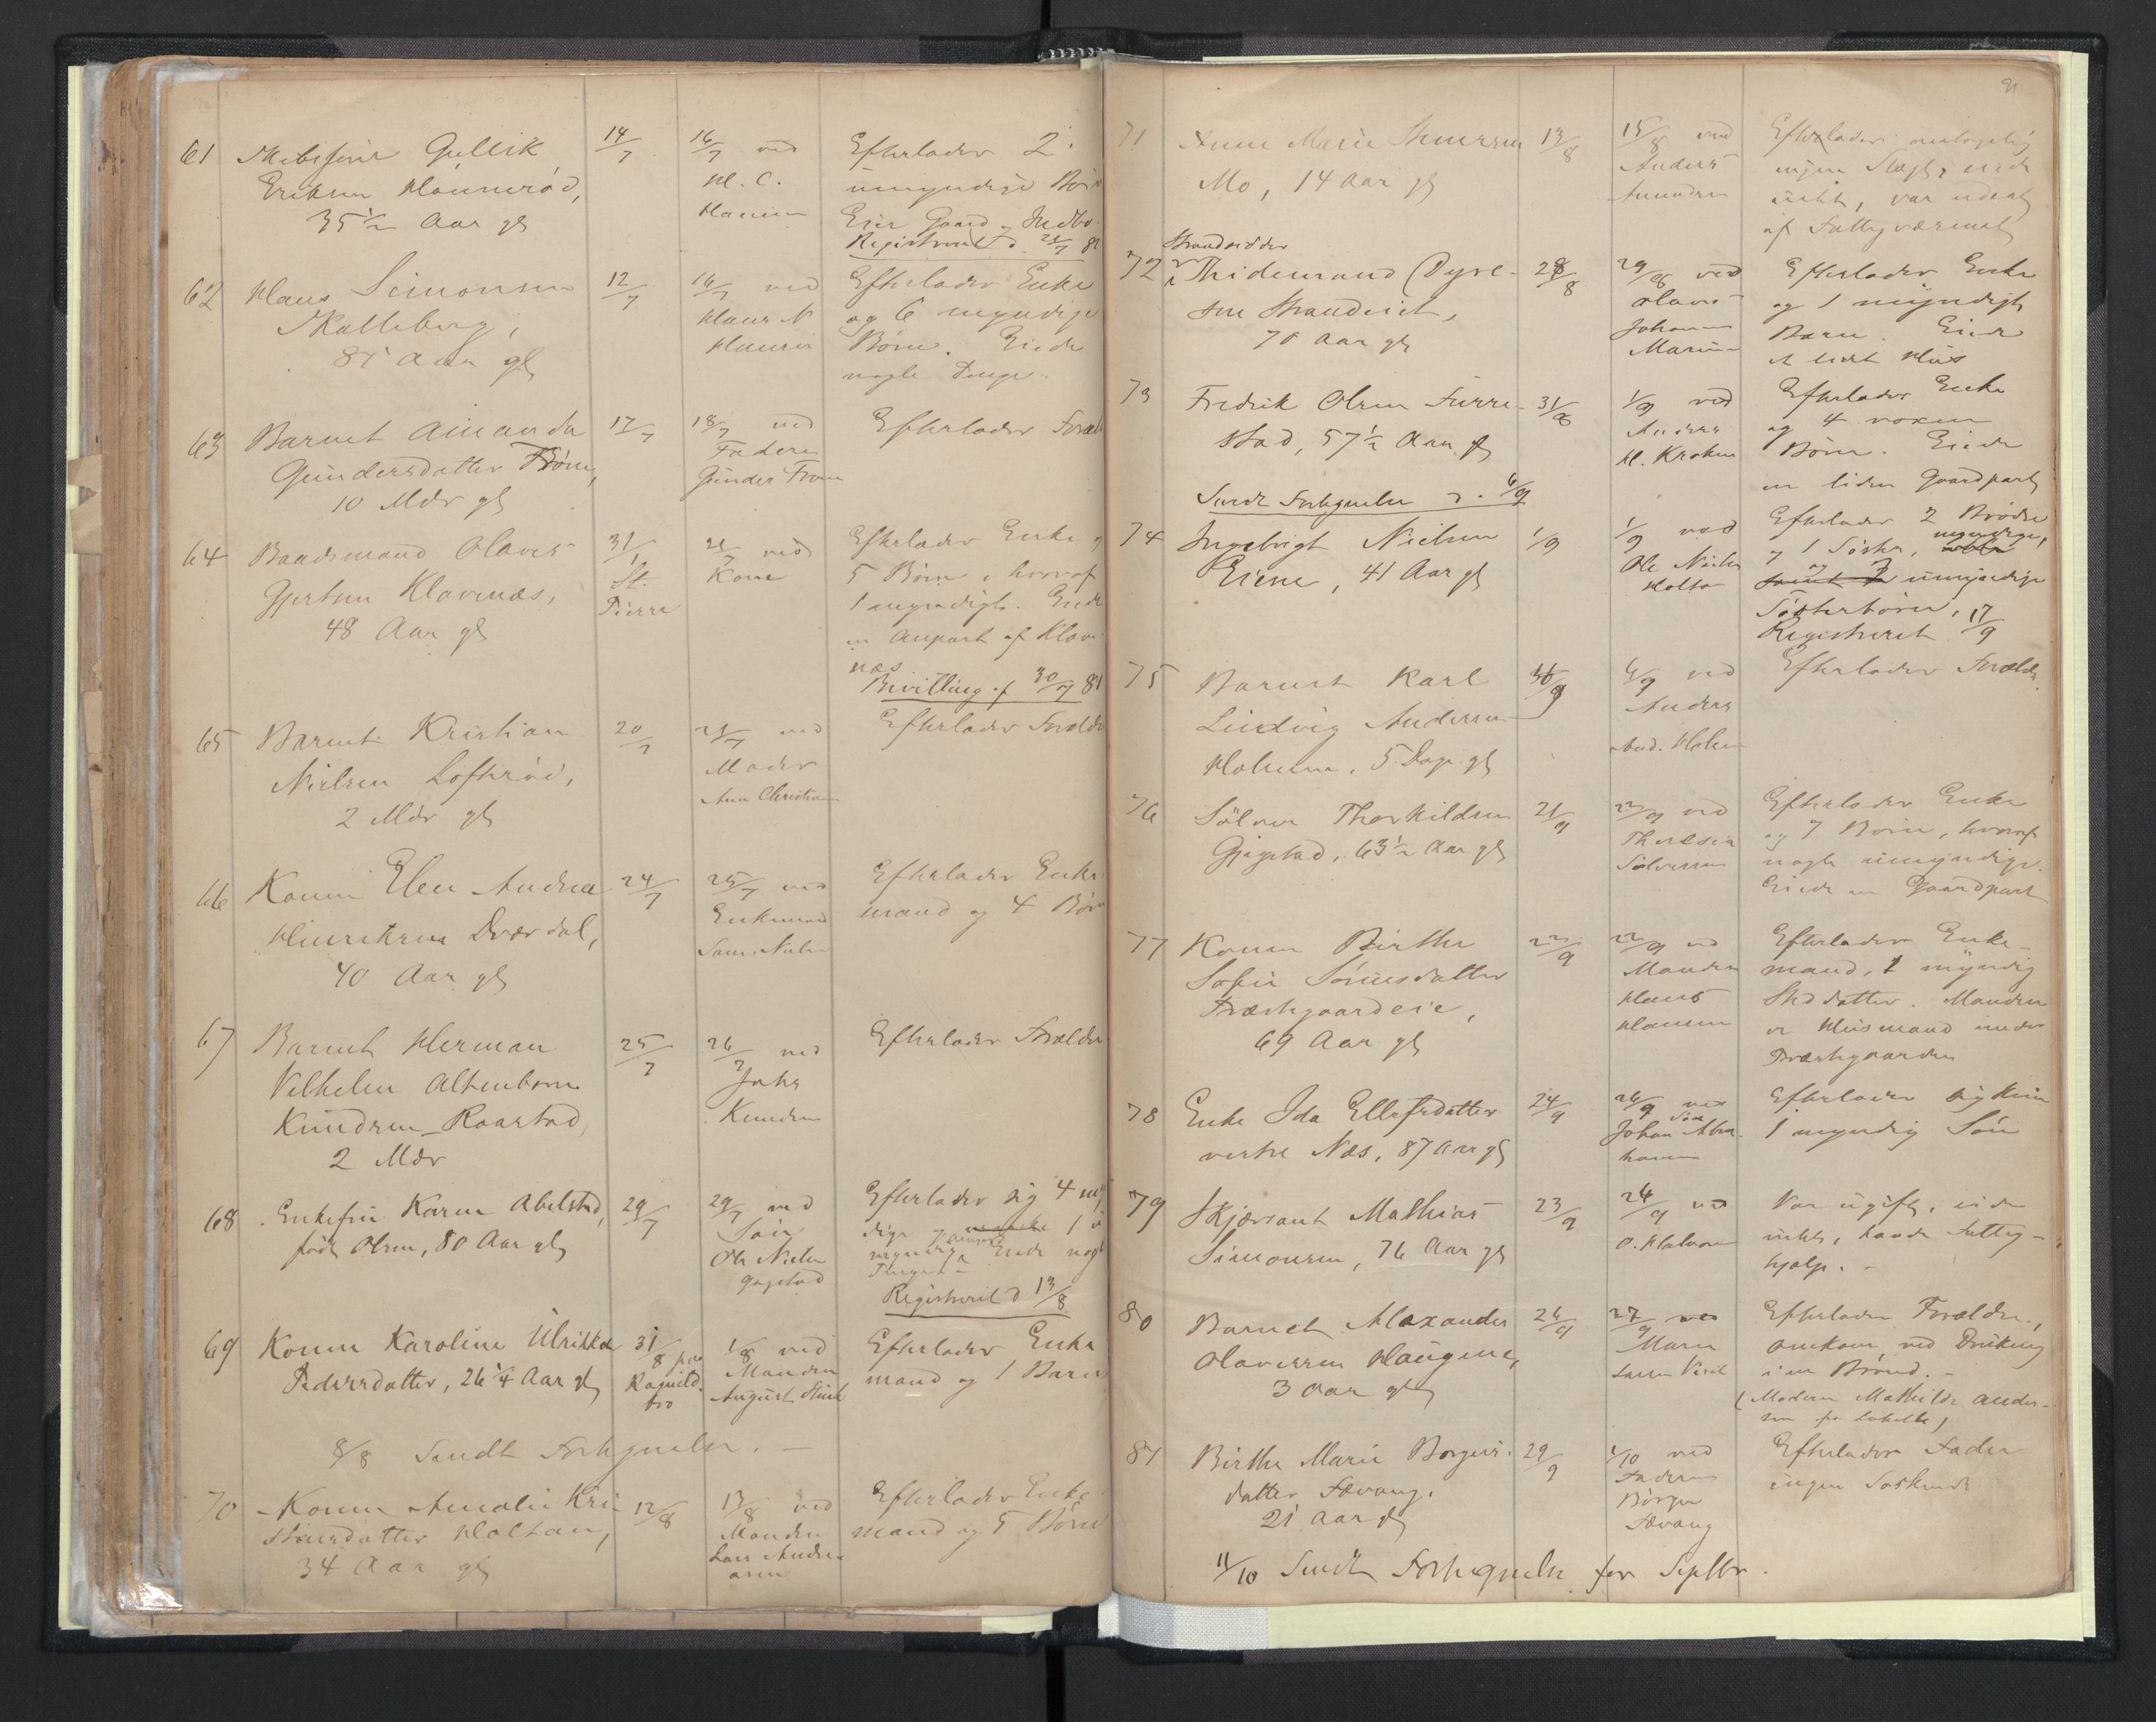 61 Skibsfører Gullik
Eriksen Hønnerød,
35½ Aar gl
14/7
16/7 ved
H. C.
Hansen
Efterlader 2
umyndige Børn
Eier Gaard og Indbo.
Registreret d. 21/7 81
62 Hans Simonsen
Skalleberg,
85 Aar gl
12/7
16/7 ved
Hans N
Hansen
Efterlader Enke
og 6 myndige
Børn. Eiede
nogle Penge.
63 Barnet Amanda
Gundersdatter Trøne,
10 Mdr gl
17/7
18/7 ved
Faderen
Gunder Trøne
Efterlader Foræld
64 Baadsmand Olaves
Gjertsen Klavenæs,
48 Aar gl
31/1
St.
Pierre
21/7 ved
Kone
Efterlader Enke og
5 Børn, hvoraf
1 myndigt. Eiede
en Anpart af Klave-
næs
Bevilling af 30/7 81
65 Barnet Kristian
Nielsen Lofterød,
2 Mdr gl
20/7
21/7 ved
Moder
Ann Christian
Efterlader Forældre
66 Konen Elen Andrea
Hinriksen Dverdal,
40 Aar gl
24/7
25/7 ved
Enkemand
Sam. Nielsen
Efterlader Enke-
mand og 4 Børn
67 Barnet Herman
Vilhelm Altenborn
Knudsen Raastad,
2 Mdr
25/7
26/7 ved
Johs
Knudsen
Efterlader Forældre
68 Enkefru Karen Abelsted,
født Olsen, 80 Aar gl
29/7
29/7 ved
Søn
Ole Nielsen
Gogstad
Efterlader sig 4 myn
dige og 1 u
myndig Eiede nogle
Penge
Registreret d 13/8
69 Konen Karoline Ulrikke
Pedersdatter, 26¼ Aar gl
31/8 paa
Ragnild-
bro
1/8 ved
Manden
August
Efterlader Enke
mand og 1 Barn
8/8 Sendt Fortegnelse. —
70 Konen Amalie Kri-
stensdatter Holtan,
34 Aar gl
12/8
13/8 ved
Manden
Lars Andre-
asen
Efterlader Enke-
mand og 5 Børn
91
71 Anne Marie Thoresen
Mo, 14 Aar gl
13/8
15/8 ved
Anders
Amundsen
Efterlader
ingen Slægt, eiede
intet, var udsat
af Fattigvæsenet
Strandsidder
72 Thidemand Dyre-
sen Strandvik,
70 Aar gl
28/8
29/8 ved
Hans
Johannes
Efterlader Enke
og 1 myndigt
Barn. Eiede
et lidet Hus
73 Fredrik Olsen Furu-
stad, 57½ Aar gl
31/8
1/9 ved
Anders
H. Kroken
Efterlader Enke
og 4 voxne
Børn. Eiede
en liden Gaardpart
Sendt Fortegnelse d. 6/9
74 Ingebrigt Nielsen
Eiene, 41 Aar gl
1/9
1/9 ved
Ole Nielsen
Holtan
Efterlader 2 Brødre
og 1 Søster, myndige,
og 3 umyndige
Søsterbørn,
Registreret 17/9
75 Barnet Karl
Ludvig Andersen
Holmen, 5 Dage gl
6/9 ved
Anders
And. Holmen
Efterlader Forældre.
76 Sølver Thorkildsen
Gjegstad, 63½ Aar gl
21/9
22/9 ved
Sølversen
Efterlader Enke
og 7 Børn, hvoraf
nogle umyndige.
Eiede en Gaardpart
77 Konen Birthe
Sofie Sørensdatter
Præstegaardeie,
69 Aar gl
22/9
22/9 ved
Manden
Hans
Hansen
Efterlader Enke-
mand, 1 myndig
Steddatter. Manden
er Husmand under
Præstegaarden
78 Enke Ida Ellefsdatter
vestre Næs, 87 Aar gl
24/9
26/9 ved
Søn
Johan Abra-
hamsen
Efterlader sig kun
1 myndig Søn
79 Skjærsant Mathias
Simonsen, 76 Aar gl
23/9
26/9 ved
O. Halvorsen
Var ugift, eiede
intet, havde Fattig-
hjælp. -
80 Barnet Alexander
Olavesen Haugene,
3 Aar gl
26/9
27/9 ved
Maren
Efterlader Forældre,
omkom ved Drukning
i en Brønd. -
(Modern Mathilde Ander-
sen fra
81 Birthe Marie Borger-
datter Fevang,
21 Aar gl
29/9
1/10 ved
Faderen
Børger
Fevang
Efterlader Fader
ingen Søskende
11/10 Sendt Fortegnelse for Septbr.